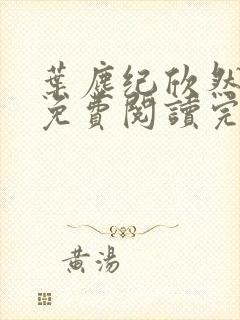 葉塵紀欣然
免費閱讀完
黃湯